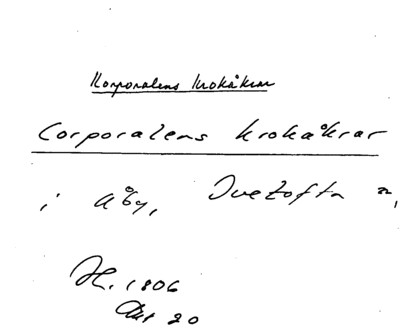 Korporalens krokåkrar
Corporalens krokåkrar
i Åby, Ivetofta sn,
H. 1806
Akt 20